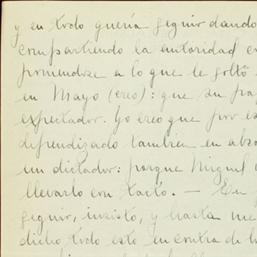 y en todo quería seguir dando
compartiendo la autoridad
poniendose a lo que le soltó
en Mayo (creo): que su pa
expectador. Yo creo que por es
difrendizado tambien en abso
un dictador: porque Miguel
llevarlo con tacto. — En
seguir, insisto, y hasta me
dicho todo esto en contra de